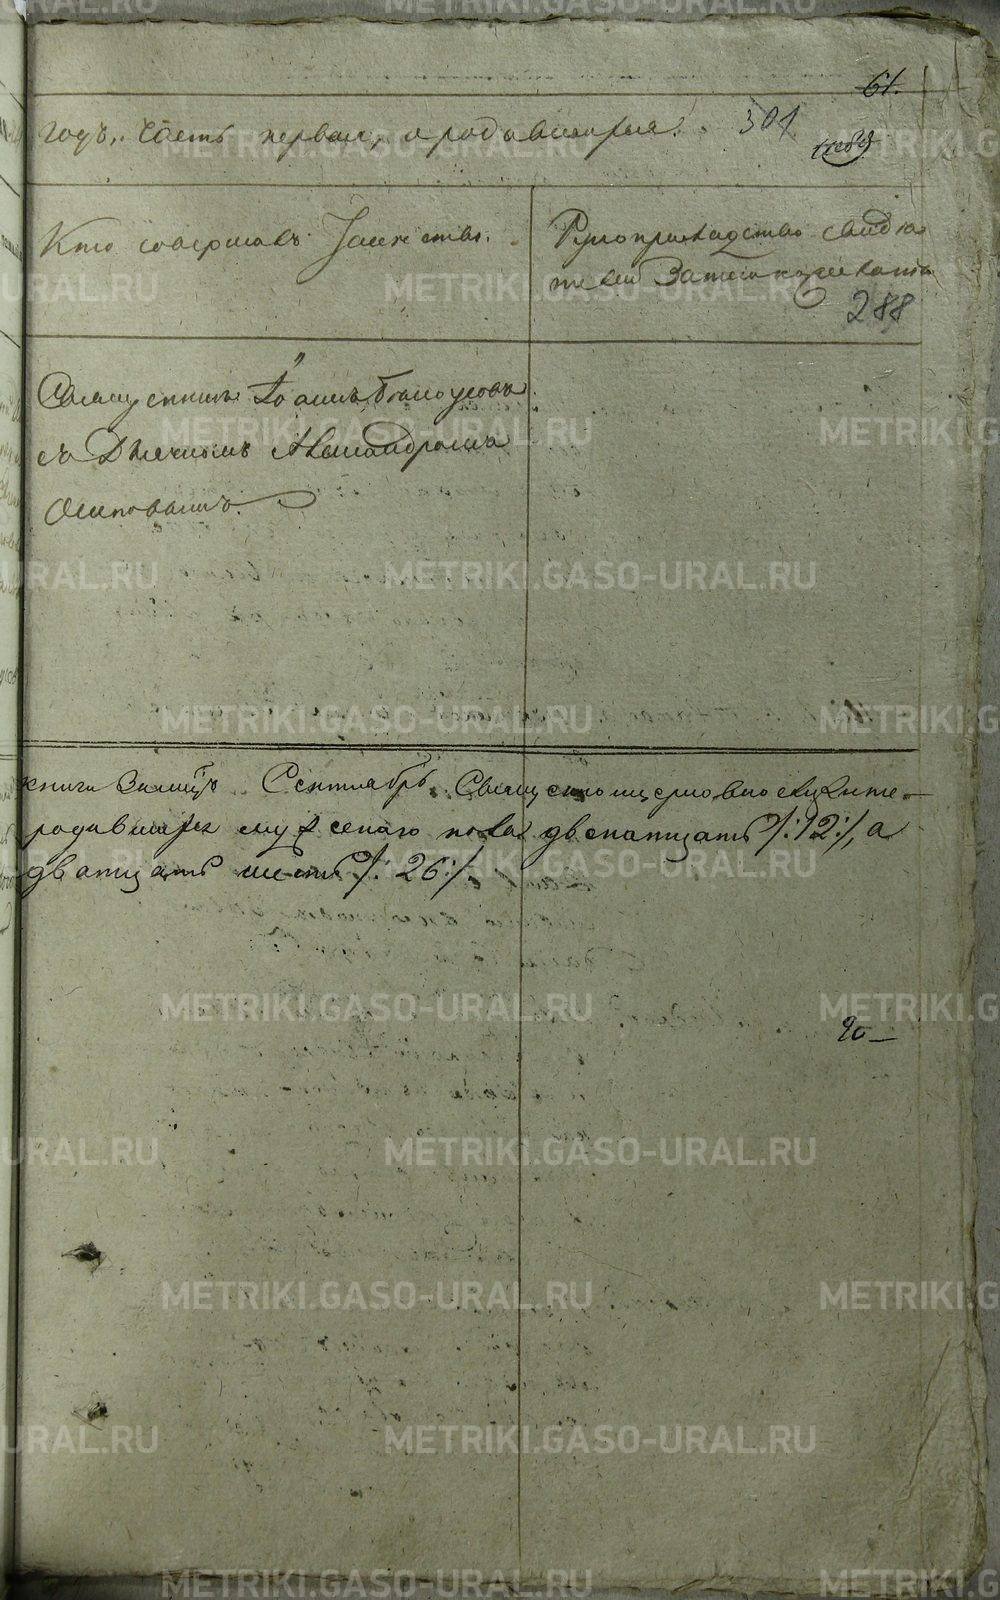 61.
годъ. Часть первая, о родившихся.
301
Кто совершалъ Таинство.
Рукоприкладство свидѣ
телей Записи по желанiю
288
Священникъ Iоаннъ Бѣлоусовъ
съ Дьячкомъ Александромъ
Осиповымъ.
книги Зимѣцъ Сентябрь Священно церковно служите-
родившихся мужескаго пола двенатцать /:12:/, а
дватцать шесть /:26:/.
20
METRIKI.GASO-URAL.RU